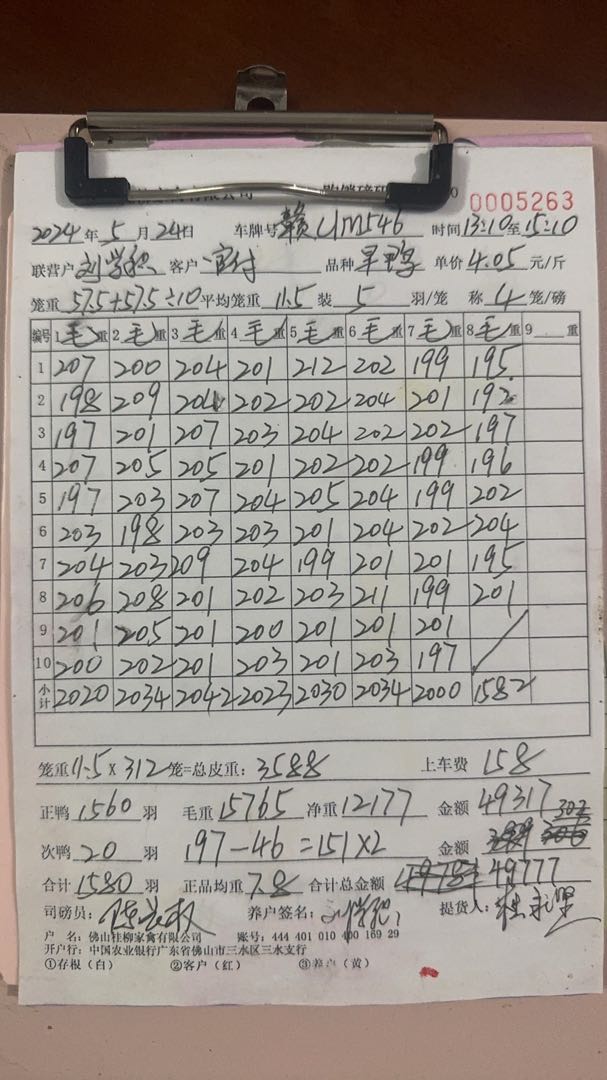 有限公司 购销磅码
0005263
2024年5月24日 车牌号 赣UM546 时间13:10至15:10
联营户 刘学积 客户 官付 品种 单价4.05元/斤
笼重57.5+57.5÷10平均笼重11.5装5羽/笼 称4笼/磅
编号 1毛重 2毛重 3毛重 4毛重 5毛重 6毛重 7毛重 8毛重 9 重
1 207 200 204 201 212 202 199 195
2 198 209 204 202 202 204 201 192
3 197 201 207 203 204 202 202 197
4 207 205 205 201 202 202 199 196
5 197 203 207 204 205 204 199 202
6 203 198 203 203 201 204 202 204
7 204 203 209 204 199 201 201 195
8 206 208 201 202 203 211 199 201
9 201 205 201 200 201 201 201
10 200 202 201 203 201 203 197
小计 2020 2034 2042 2023 2030 2034 2000 1582
笼重11.5×312笼=总皮重:3588 上车费158
正鸭1560羽 毛重15765净重12177 金额49317
次鸭20羽 197-46=151×2 金额 302
合计1580羽 正品均重7.8 合计总金额 49777
司磅员: 养户签名:刘学积 提货人:
户 名:佛山桂柳家禽有限公司 账号:444 401 010 400 169 29
开户行:中国农业银行广东省佛山市三水区三水支行
①存根(白) ②客户(红) ③养户(黄)